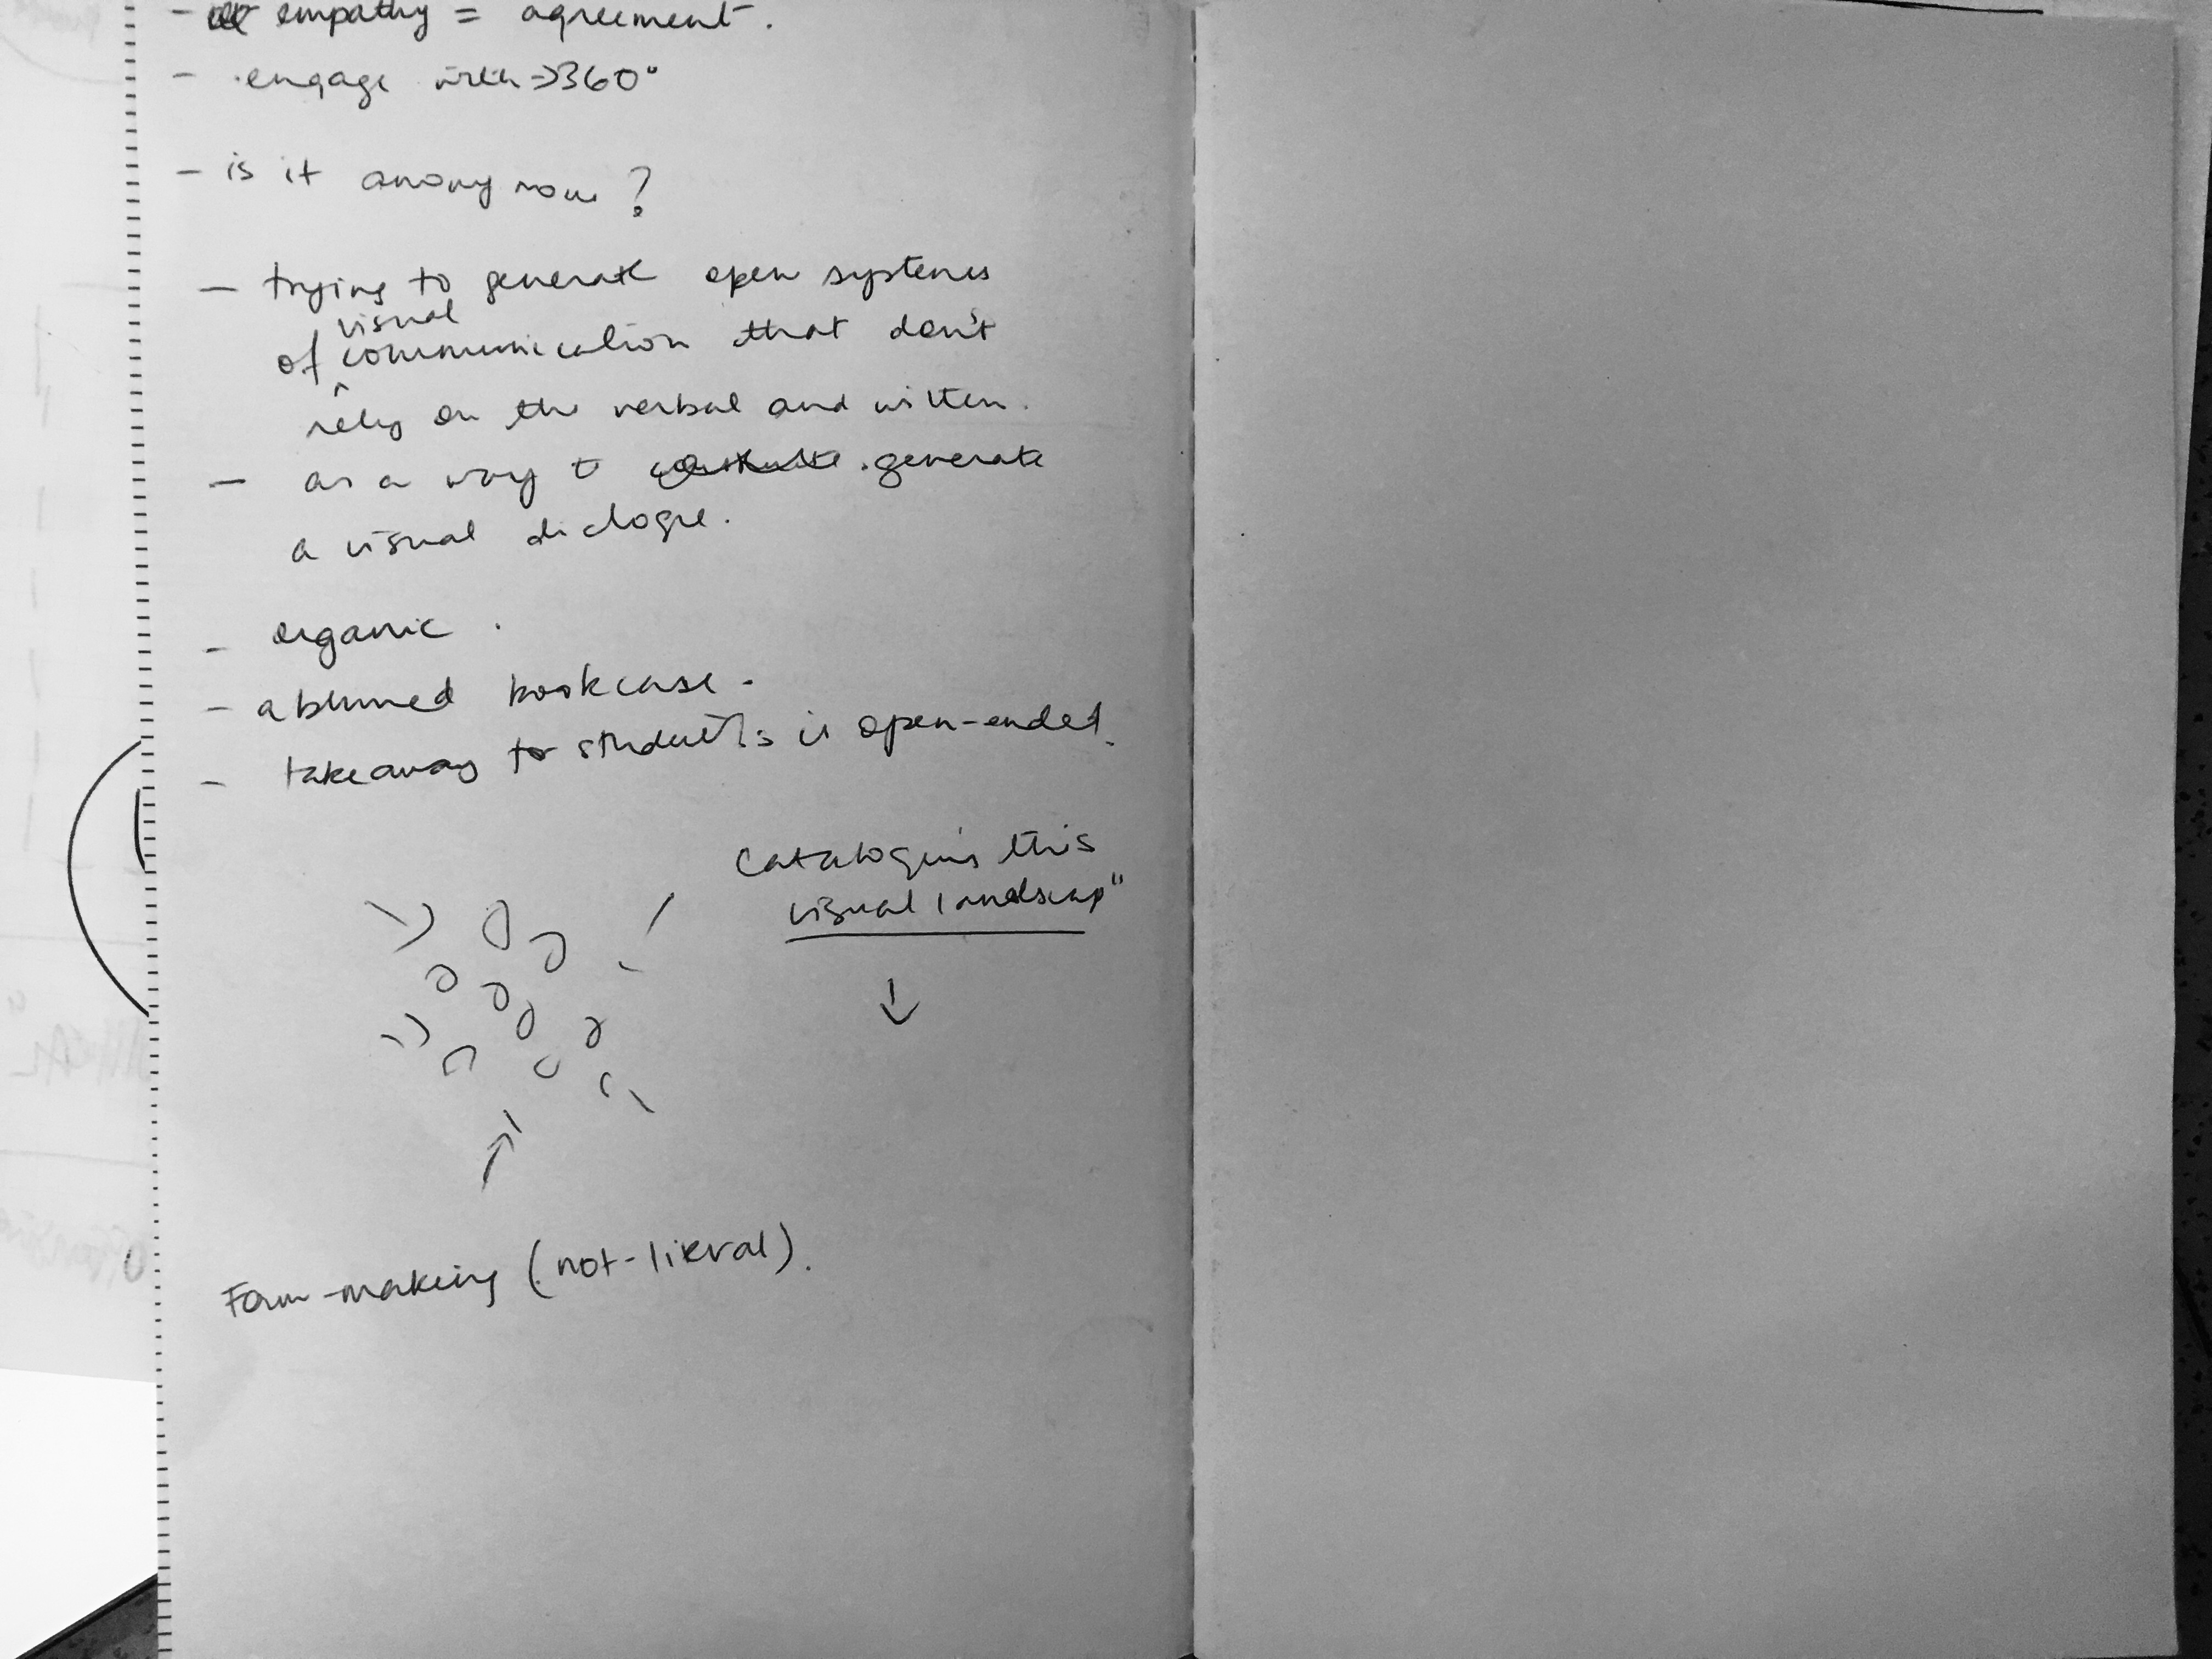 - empathy = agreement.
- engage with → 360°
- is it anonymous?
- trying to generate open systems
visual
of communication that don't
rely on the verbal and written.
- as a way to generate
a visual dialogue.
- organic.
- bookcase.
- takeaway to students is open-ended.
Cataloguing this
visual landscape"
Form-making (not-literal).